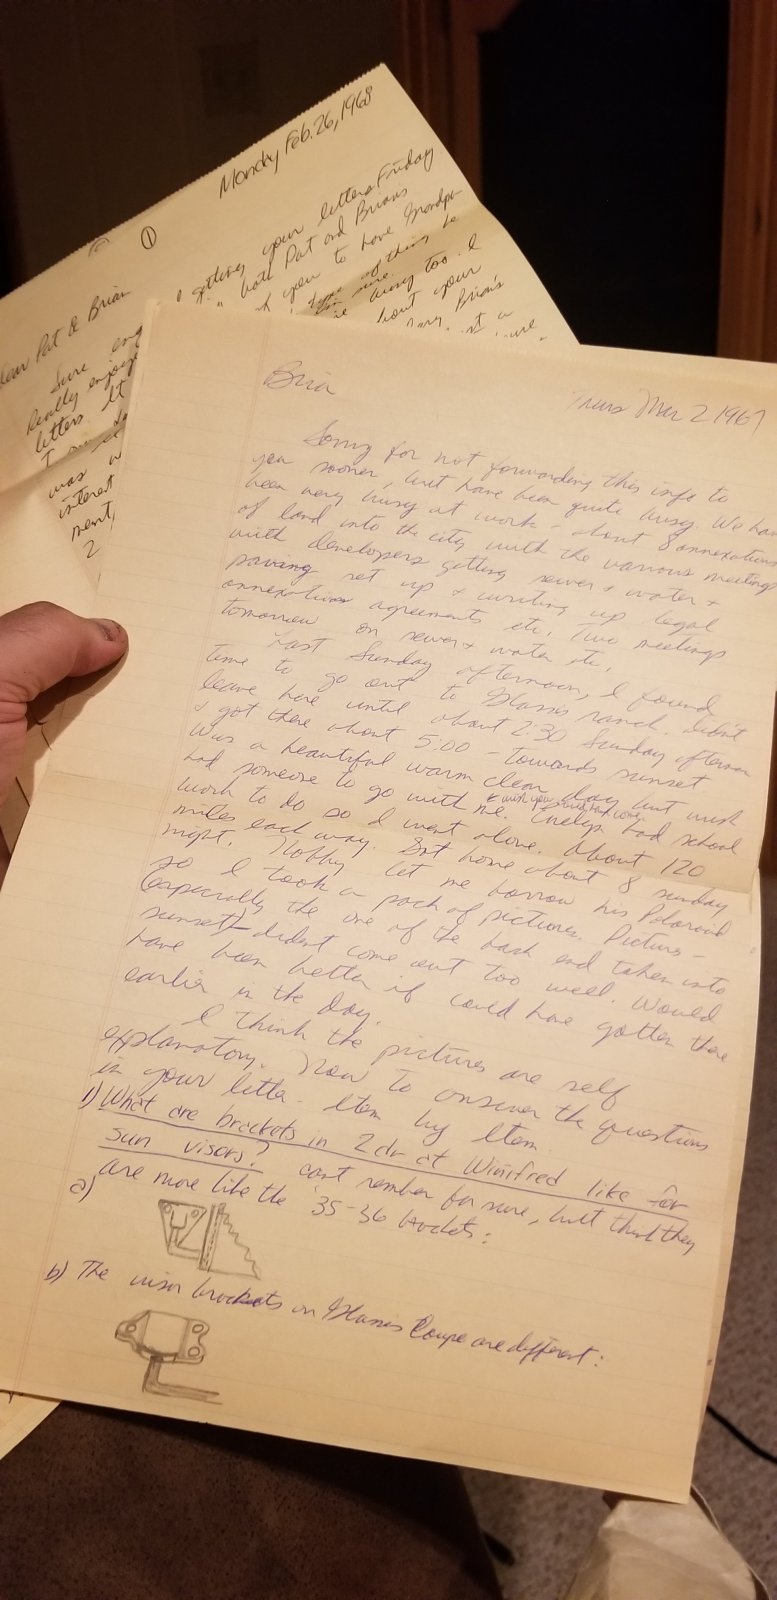 Monday Feb. 26, 1968
①
Dear Pat & Brian
Sure getting your letters Friday
Really enjoy both Pat and Brians
letters. It of you to have Grandpa
type of thing be
I'm sure.
away too. I
about your
Brian's
was
interest
ment,
2
Brian
Thurs Mar 2 1967
Sorry for not forwarding this info to
you sooner, but have been quite busy. We have
been very busy at work - about 8 annexations
of land into the city with the various meetings
with developers getting sewer & water &
paving set up & writing up legal
annexation agreements etc. Two meetings
tomorrow on sewer & water etc.
Last Sunday afternoon, I found
time to go out to ranch. Didn't
leave here until about 2:30 Sunday afternoon
& got there about 5:00 - towards sunset
Was a beautiful warm clear day but wish
had someone to go with me. & wish you could have come
Evelyn had school
work to do so I went alone. About 120
miles each way. Got home about 8 Sunday
night. Nobby let me borrow his Polaroid
so I took a pack of pictures. Pictures -
(especially the one of the back end taken into
sunset) - dident come out too well. Would
have been better if could have gotten there
earlier in the day.
I think the pictures are self
explanatory. Now to answer the questions
in your letter - Item by Item.
1) What are brackets in 2 dr at Winifred like for
sun visors? cant rember for sure, but think they
are more like the '35-36 brackets:
a)
b) The visor brackets on Coupe are different: